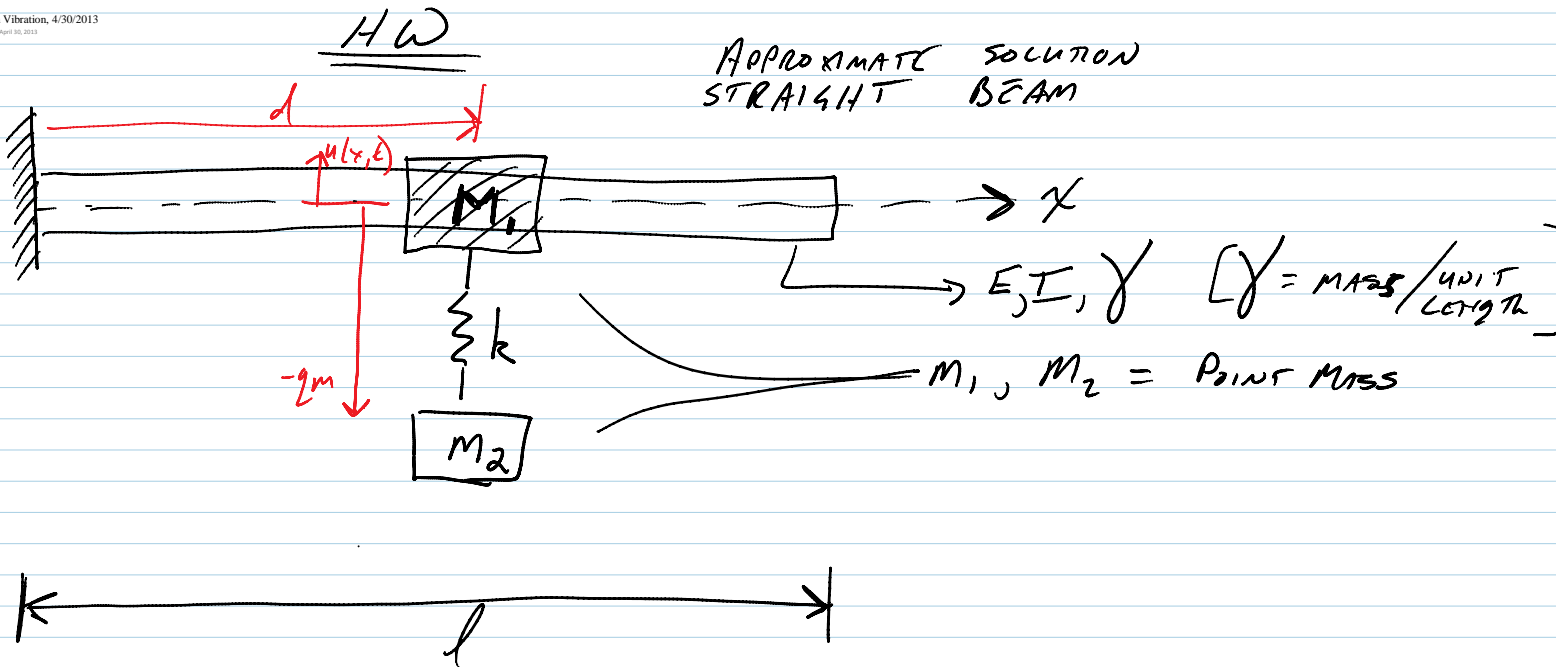 Vibration, 4/30/2013
April 30, 2013
HW
APPROXIMATE SOLUTION
STRAIGHT BEAM
d
u(x,t)
M1
x
E, I, γ [γ = MASS/UNIT LENGTH]
k
-qm
M1, M2 = POINT MASS
M2
l